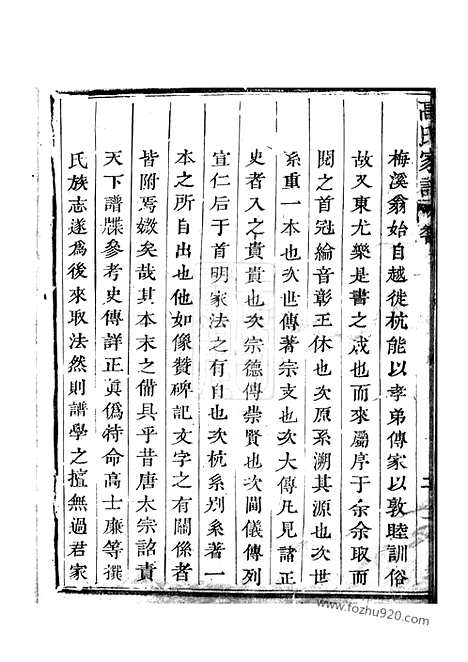 高氏家譜
梅溪翁始自越徙杭能以孝弟傳家以敦睦訓俗
故又東尤樂是書之成也而來屬序于余余取
閱之首冠綸音彰王休也次原系溯其源也次世
系重一本也次世傳著宗支也次大傳凡見諸正
史者入之貴貴也次宗德傳崇賢也次閫儀傳列
宣仁后于首明家法之有自也次杭系别系著一
本之所自出也他如像贊碑記文字之有關係者
皆附焉媺矣哉其本末之備具乎昔唐太宗詔責
天下譜牒參考史傳詳正眞僞特命高士廉等撰
氏族志遂爲後來取法然則譜學之擅無過君家
二
www.fozhu920.com